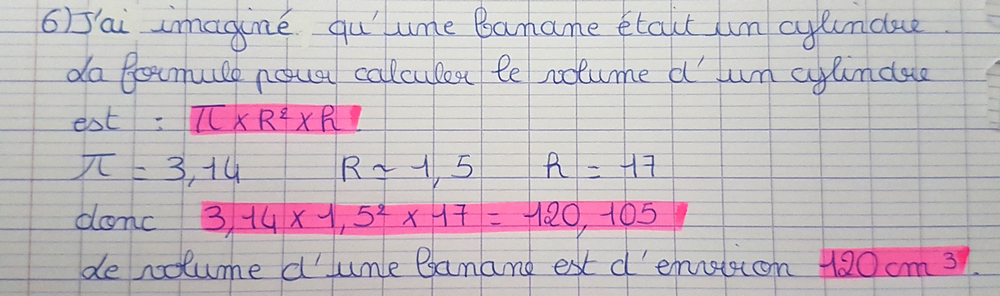 6) J'ai imaginé qu'une banane était un cylindre.
La formule pour calculer le volume d'un cylindre
est : π × R² × h.
π = 3,14 R ≃ 1,5 h = 17
donc 3,14 × 1,5² × 17 = 120,105
Le volume d'une banane est d'environ 120 cm³.